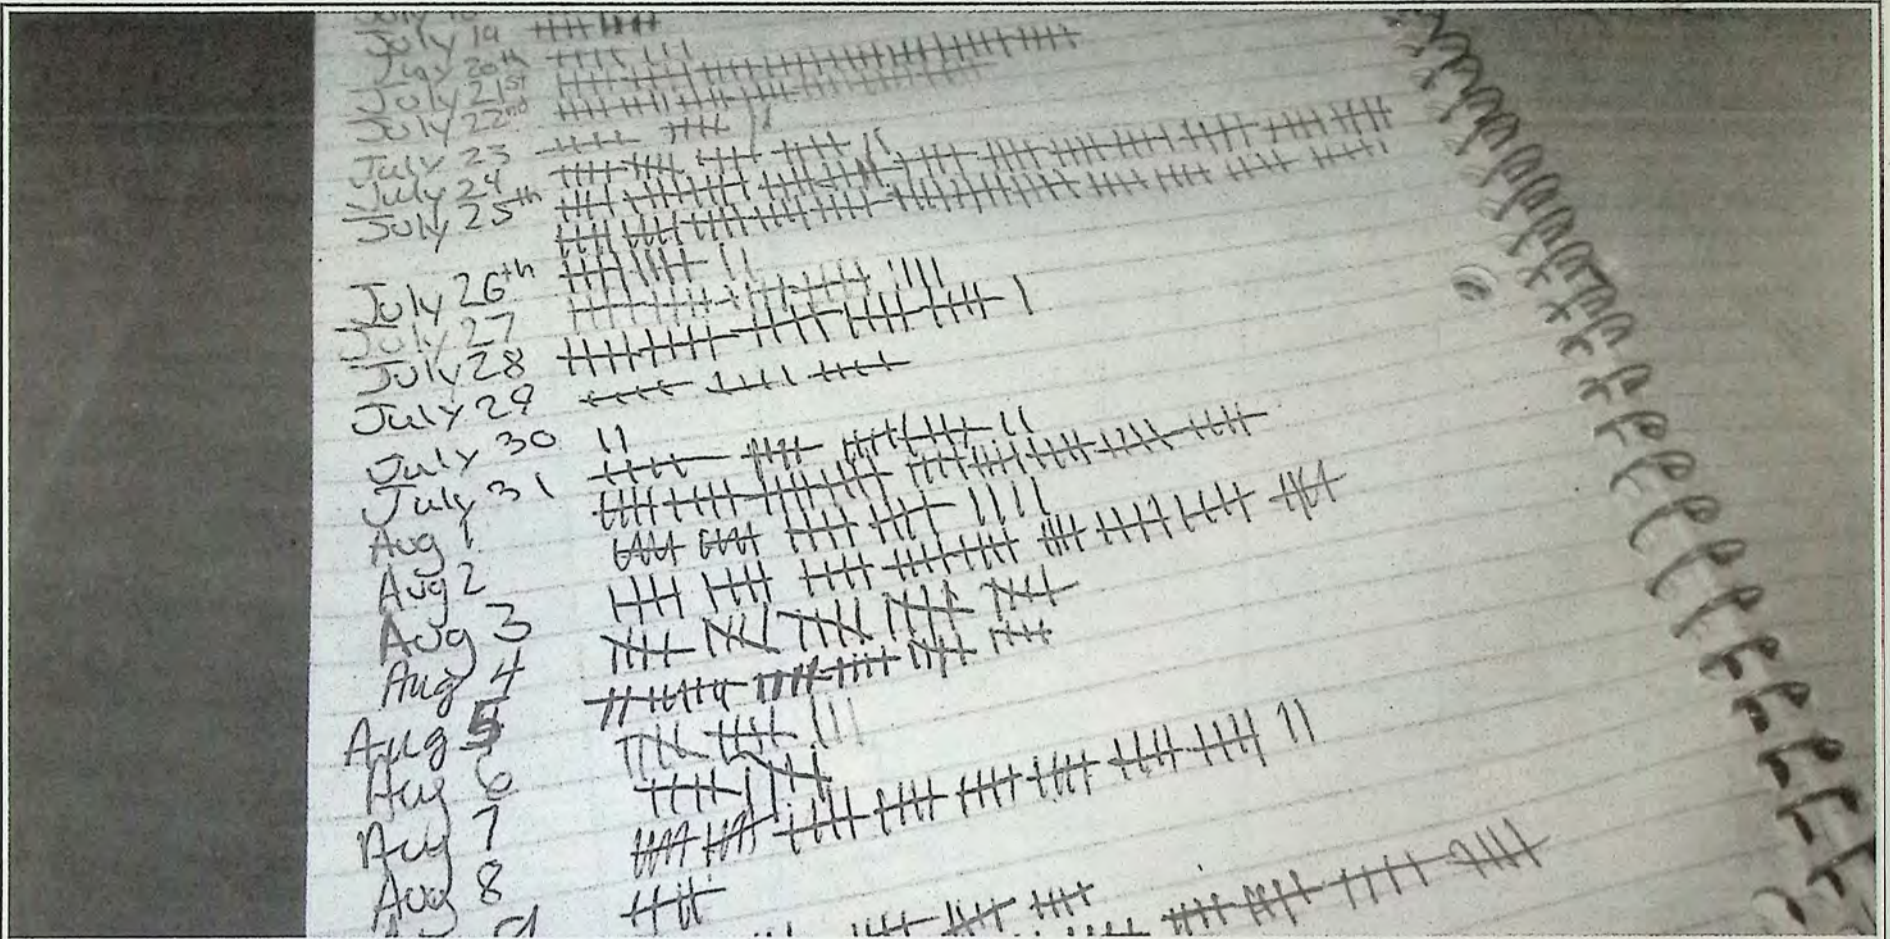 July 19
July 20th
July 21st
July 22nd
July 23
July 24
July 25th
July 26th
July 27
July 28
July 29
July 30
July 31
Aug 1
Aug 2
Aug 3
Aug 4
Aug 5
Aug 6
Aug 7
Aug 8